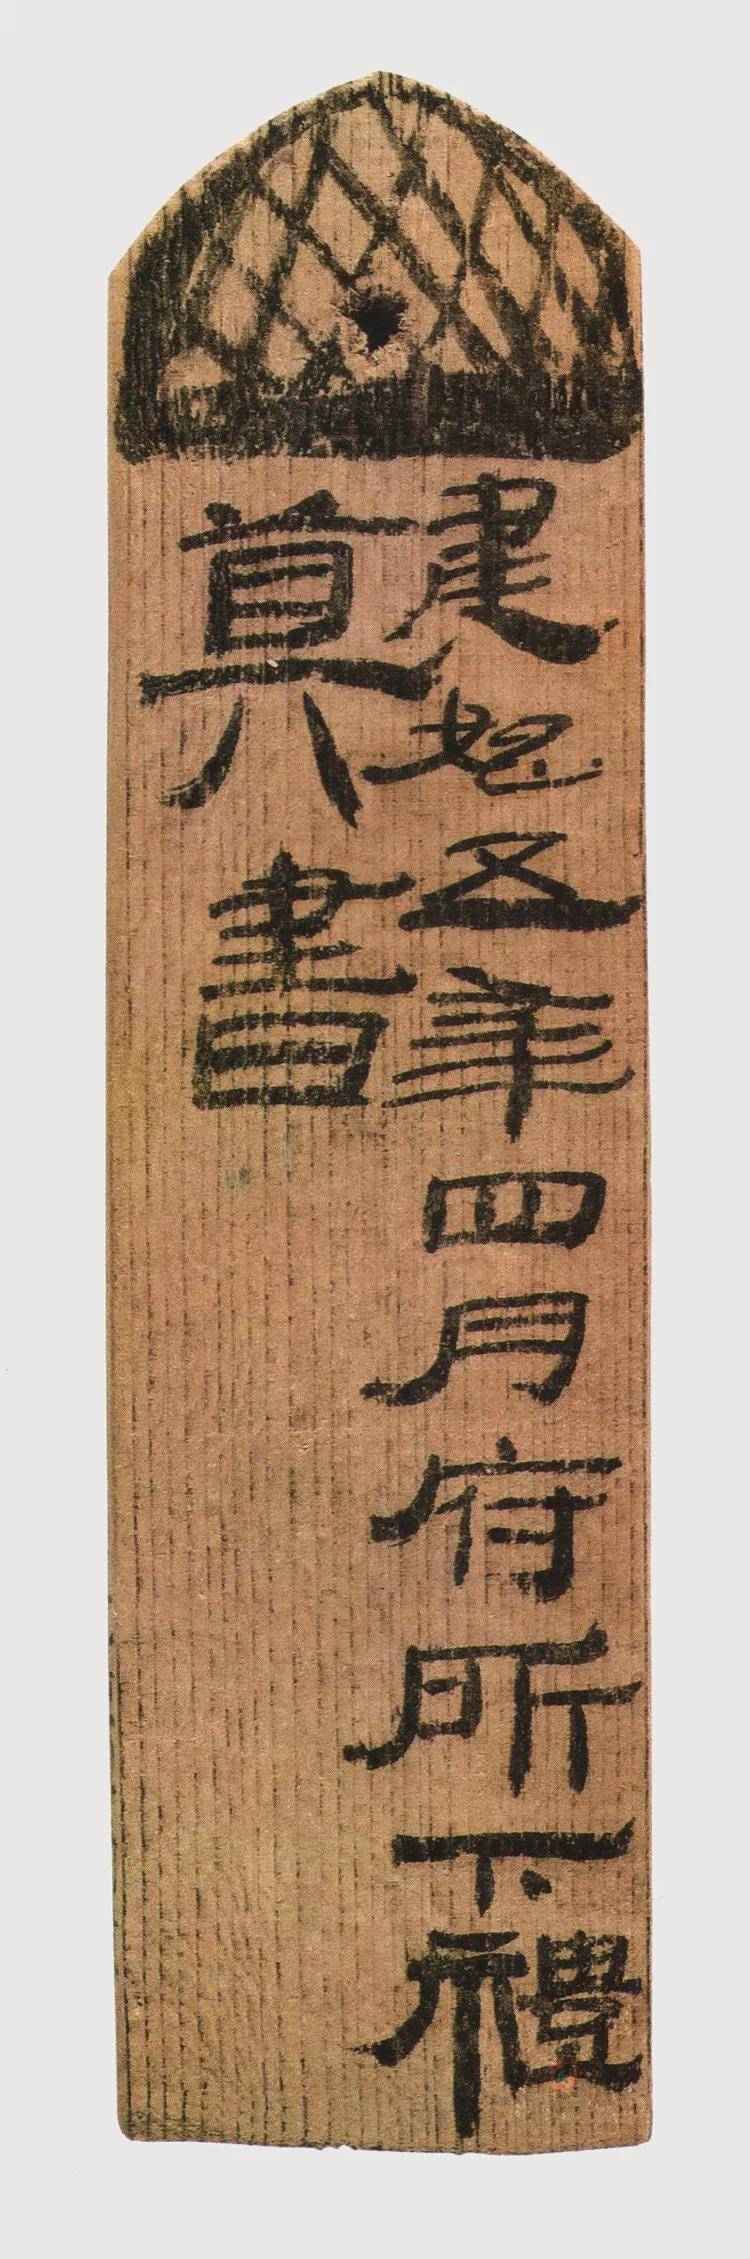 建始五年四月府所下禮
算書